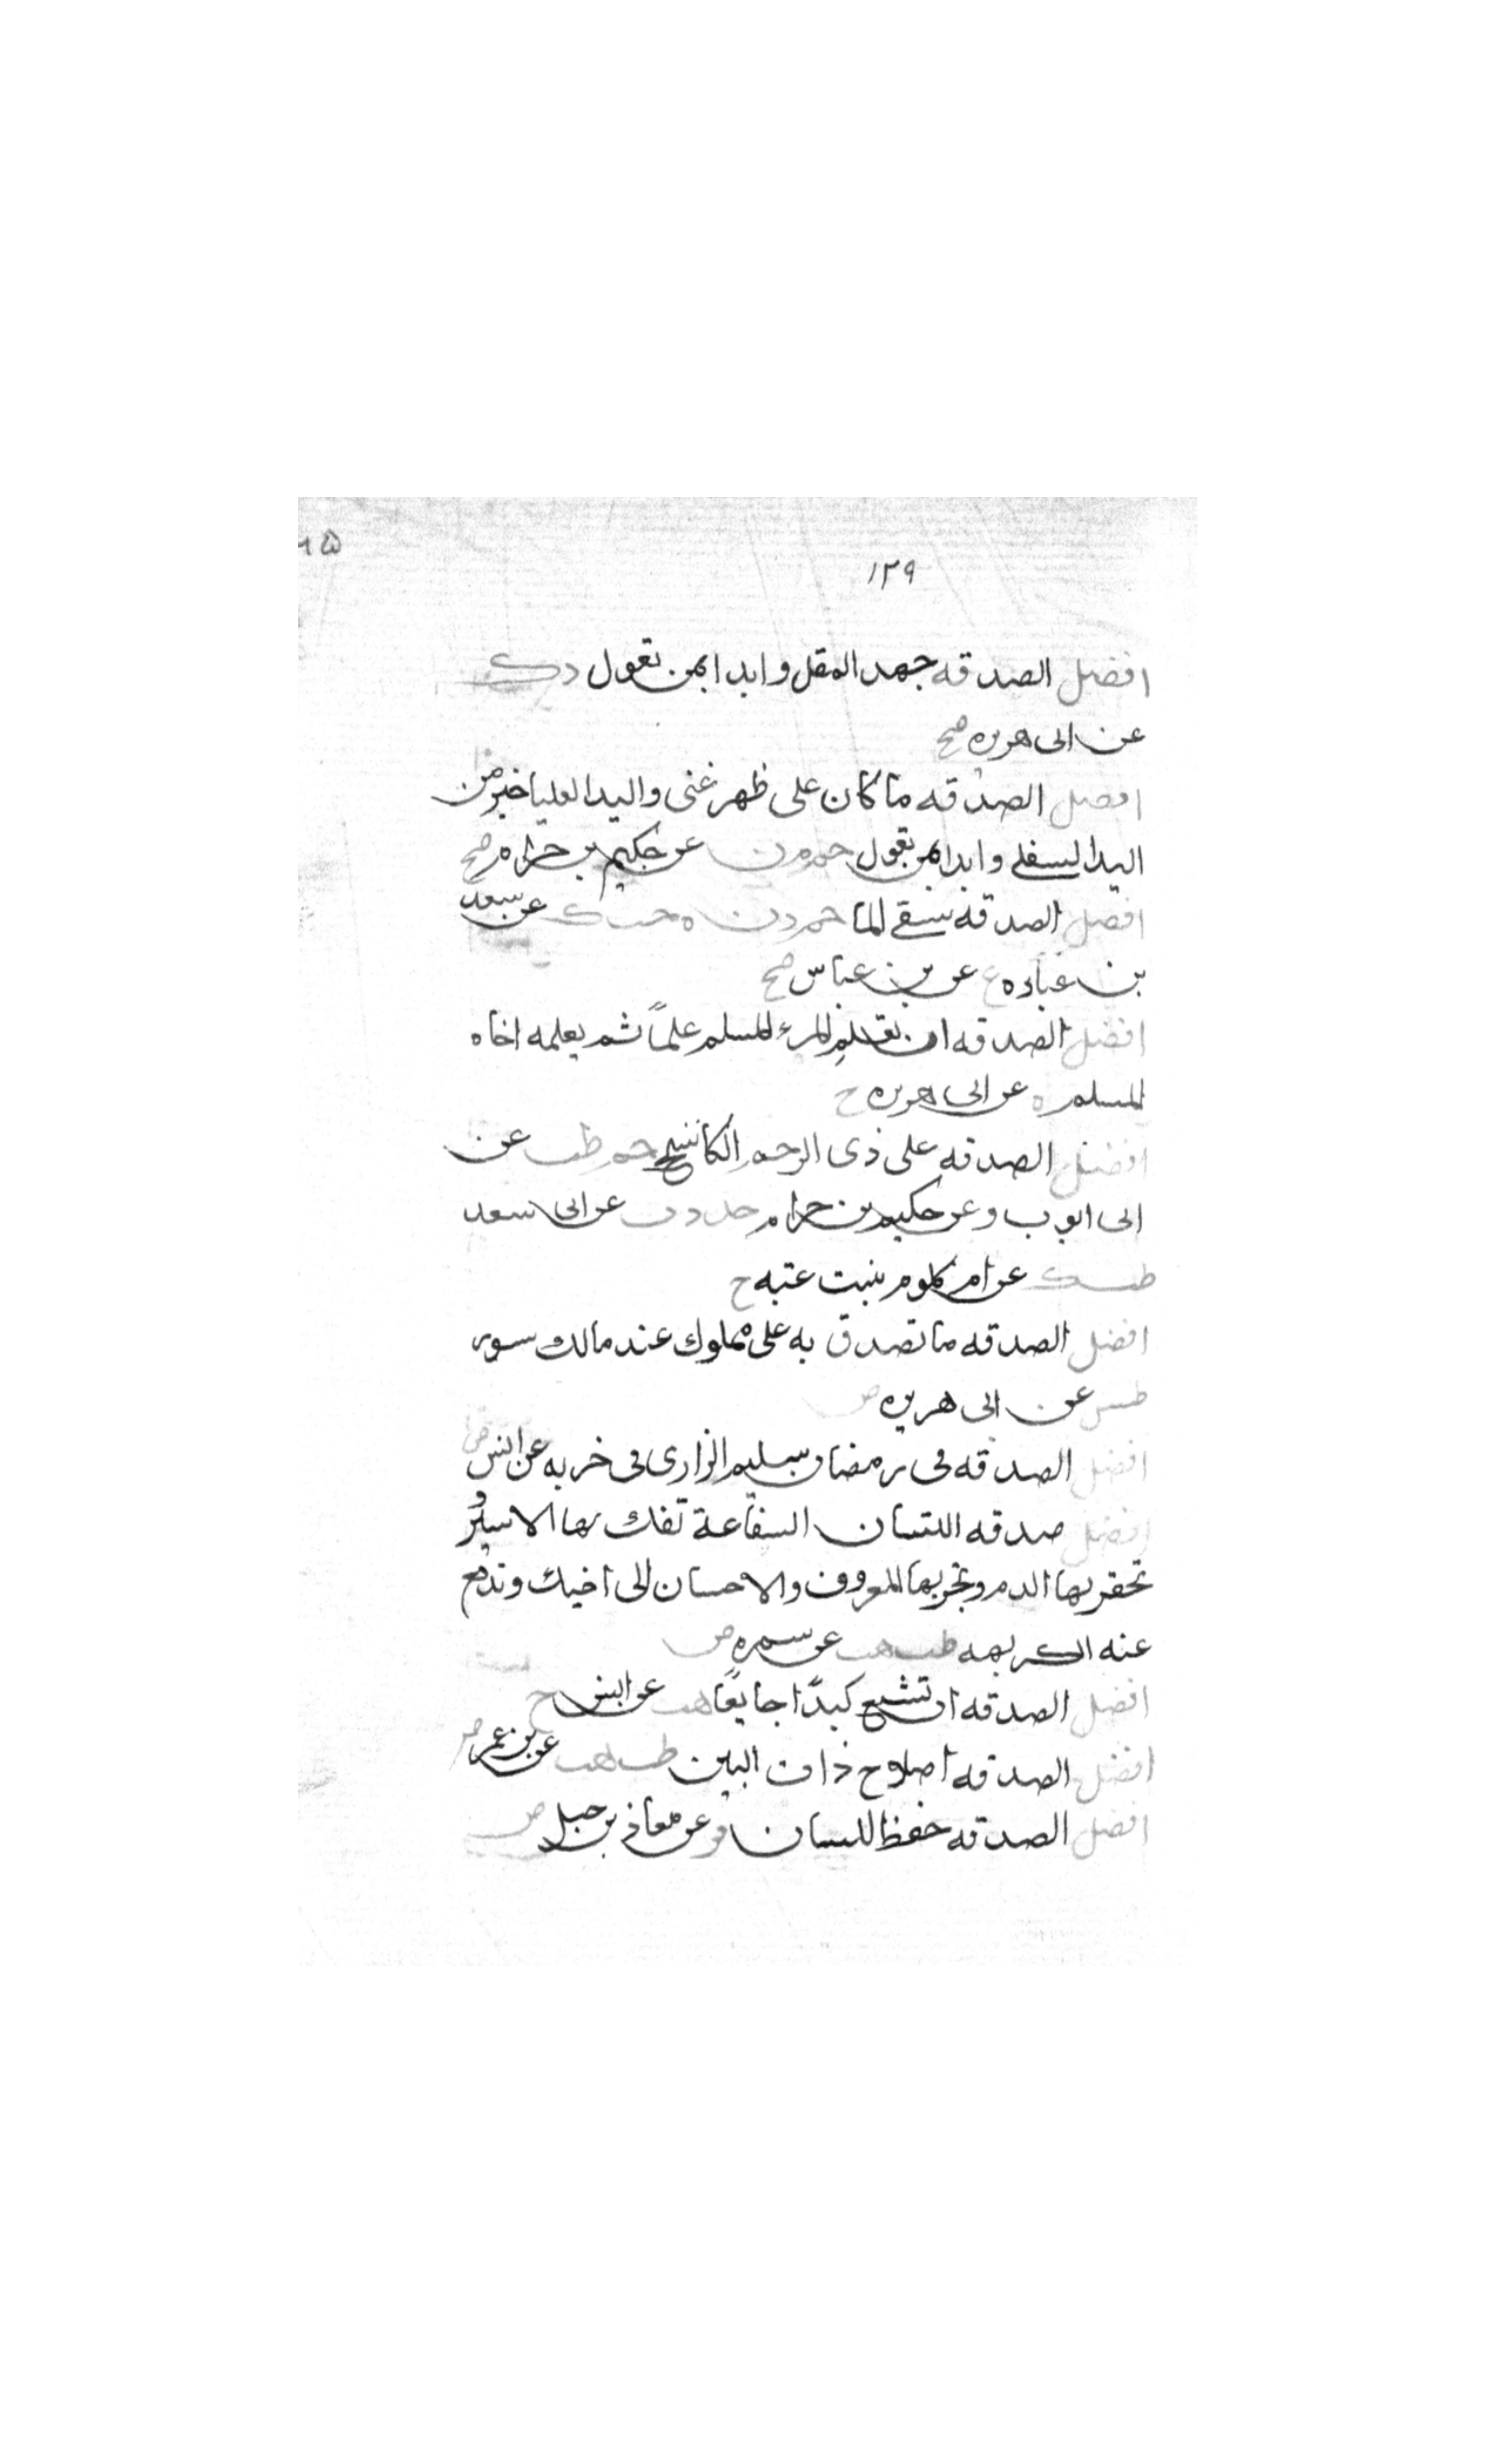 ١٢٩
افضل الصدقه جهد المقل وابدا بمن تعول د ك
عن ابى هريره صح
افضل الصدقه ما كان على ظهر غنى واليد العليا خير من
اليد السفلى وابدا بمن تعول حم م ن عن حكيم بن حزام صح
افضل الصدقه سقى الما حم د ن ه حب ك عن سعد
بن عباده ع عن بن عباس صح
افضل الصدقه ان يتعلم المرء المسلم علمًا ثم يعلمه اخاه
المسلم ه عن ابى هريره ح
افضل الصدقه على ذى الرحم الكاشح حم طب عن
ابى ايوب وعن حكيم بن حزام خد د ت عن ابى سعد
طب ك عن ام كلوم بنت عتبه ح
افضل الصدقه ما تصدق به على مملوك عند مالك سوء
طس عن ابى هريره ض
افضل الصدقه فى رمضان سليم الرازى فى خربه عن انس ض
افضل صدقه اللسان الشفاعة تفك بها الاسير و
تحقن بها الدم وتجر بها المعروف والاحسان الى اخيك وتدفع
عنه الكريهه طب هب عن سمره ض
افضل الصدقه ان تشبع كبدًا جايعًا هب عن انس ح
افضل الصدقه اصلاح ذات البين طب هب عن بن عمر ض
افضل الصدقه حفظ اللسان فر عن معاذ بن جبل ض